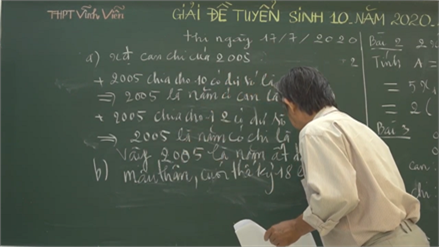 THPT Vĩnh Viễn
GIẢI ĐỀ TUYỂN SINH 10. NĂM 2020.
thi ngày 17/7/2020
a) xét can chi của 2005
+ 2005 chia cho 10 có dư số là
⇒ 2005 là năm có can là
+ 2005 chia cho 12 có dư số
⇒ 2005 là năm có chi là
Vậy 2005 là năm ất
b) mậu thân, cuối thế kỷ 18
Bài 2
Tính A =
= 5x
= 2(
Bài 3